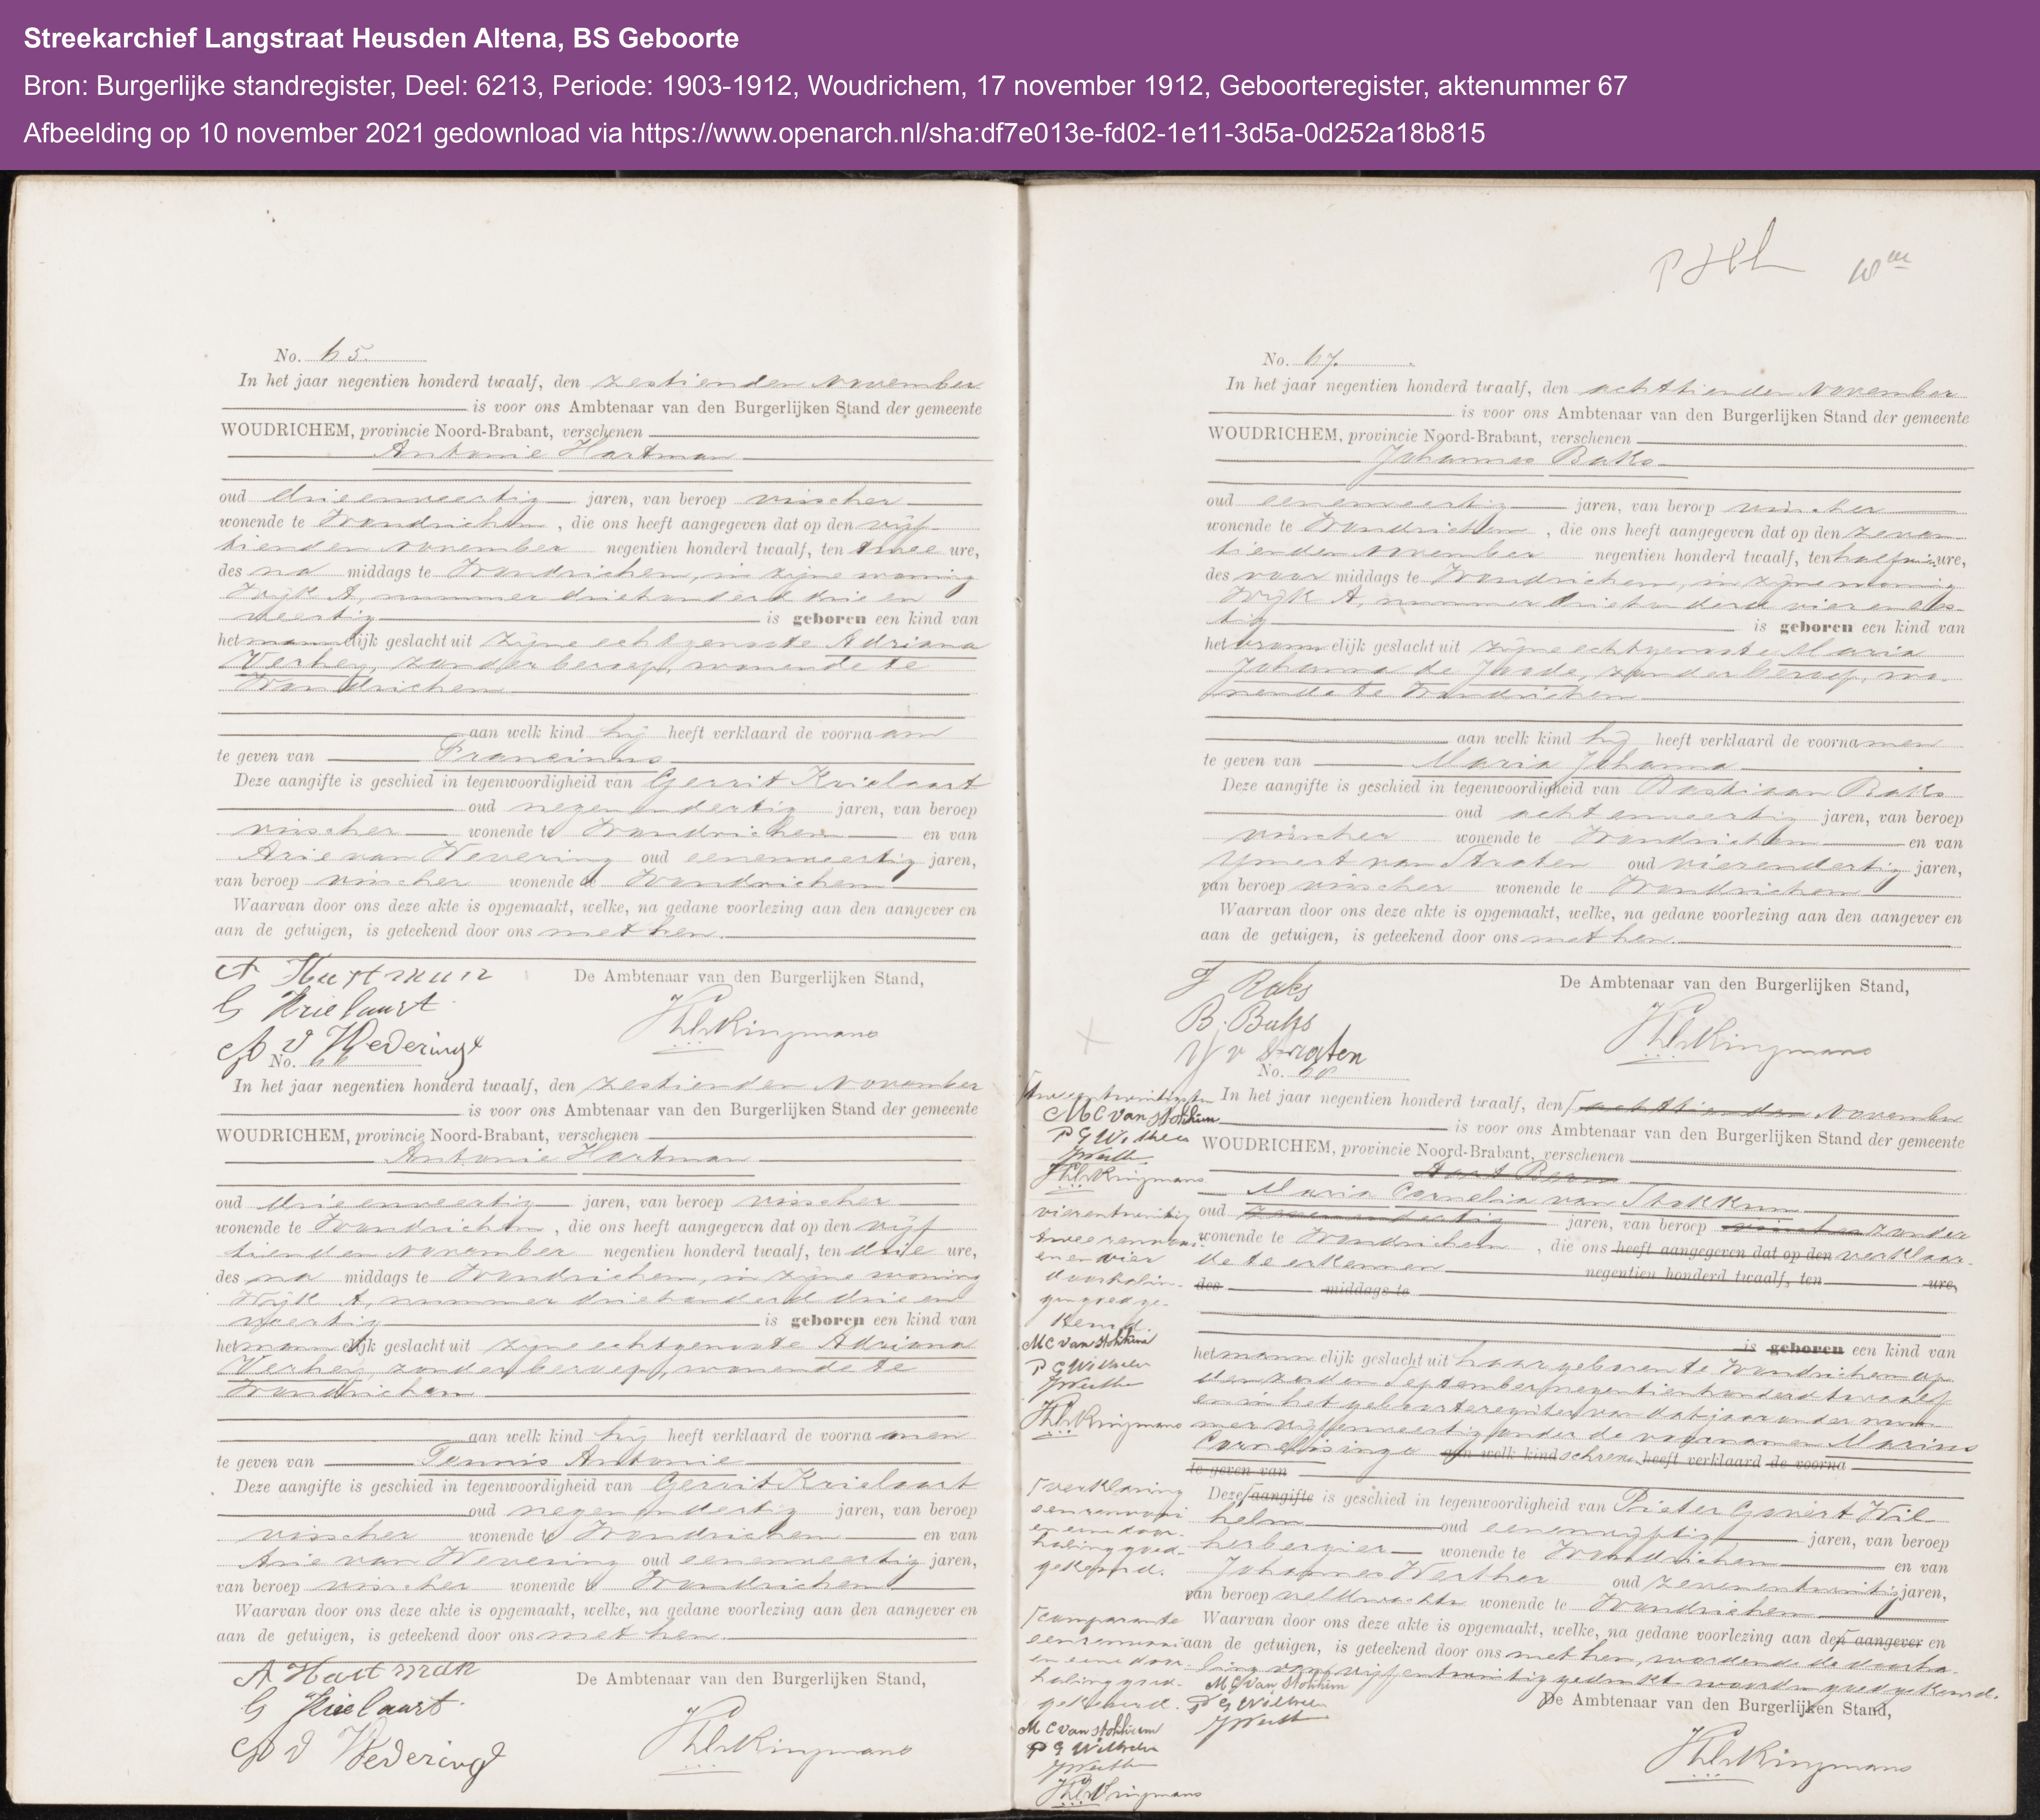 Streekarchief Langstraat Heusden Altena, BS Geboorte
Bron: Burgerlijke standregister, Deel: 6213, Periode: 1903-1912, Woudrichem, 17 november 1912, Geboorteregister, aktenummer 67
Afbeelding op 10 november 2021 gedownload via https://www.openarch.nl/sha:df7e013e-fd02-1e11-3d5a-0d252a18b815
No. 65.
In het jaar negentien honderd twaalf, den zestienden November
is voor ons Ambtenaar van den Burgerlijken Stand der gemeente
WOUDRICHEM, provincie Noord-Brabant, verschenen
Antonie Hartman
oud drieenveertig jaren, van beroep visscher
wonende te Woudrichem, die ons heeft aangegeven dat op den vijf
tienden November negentien honderd twaalf, ten twee ure,
des na middags te Woudrichem, in zijne woning
Wijk A, nummer driehonderd drie en
veertig is geboren een kind van
het mannelijk geslacht uit zijne echtgenoote Adriana
Verhey, zonder beroep, wonende te
Woudrichem
aan welk kind hij heeft verklaard de voornaam
te geven van Francinus
Deze aangifte is geschied in tegenwoordigheid van Gerrit Krielaart
oud negenendertig jaren, van beroep
visscher wonende te Woudrichem en van
Arie van Wevering oud eenenveertig jaren,
van beroep visscher wonende te Woudrichem
Waarvan door ons deze akte is opgemaakt, welke, na gedane voorlezing aan den aangever en
aan de getuigen, is geteekend door ons met hen.
A Hartman De Ambtenaar van den Burgerlijken Stand,
G Krielaart
No. 66
In het jaar negentien honderd twaalf, den zestienden November
is voor ons Ambtenaar van den Burgerlijken Stand der gemeente
WOUDRICHEM, provincie Noord-Brabant, verschenen
Antonie Hartman
oud drieenveertig jaren, van beroep visscher
wonende te Woudrichem, die ons heeft aangegeven dat op den vijf
tienden November negentien honderd twaalf, ten drie ure,
des na middags te Woudrichem, in zijne woning
Wijk A, nummer driehonderd drie en
veertig is geboren een kind van
het mannelijk geslacht uit zijne echtgenoote Adriana
Verhey, zonder beroep, wonende te
Woudrichem
aan welk kind hij heeft verklaard de voornamen
te geven van Teunis Antonie
Deze aangifte is geschied in tegenwoordigheid van Gerrit Krielaart
oud negenendertig jaren, van beroep
visscher wonende te Woudrichem en van
Arie van Wevering oud eenenveertig jaren,
van beroep visscher wonende te Woudrichem
Waarvan door ons deze akte is opgemaakt, welke, na gedane voorlezing aan den aangever en
aan de getuigen, is geteekend door ons met hen.
A Hartman De Ambtenaar van den Burgerlijken Stand,
G Krielaart
No. 67.
In het jaar negentien honderd twaalf, den achttienden November
is voor ons Ambtenaar van den Burgerlijken Stand der gemeente
WOUDRICHEM, provincie Noord-Brabant, verschenen
Johannes Baks
oud eenenveertig jaren, van beroep visscher
wonende te Woudrichem, die ons heeft aangegeven dat op den zeven
tienden November negentien honderd twaalf, ten half vier ure,
des voor middags te Woudrichem, in zijne woning
Wijk A, nummer driehonderd vier en
tig is geboren een kind van
het vrouwelijk geslacht uit zijne echtgenoote Maria
Johanna de Joode, zonder beroep, wo-
nende te Woudrichem
aan welk kind hij heeft verklaard de voornamen
te geven van Maria Johanna
Deze aangifte is geschied in tegenwoordigheid van Bastiaan Baks
oud achtenveertig jaren, van beroep
visscher wonende te Woudrichem en van
Ymert van Straten oud vierendertig jaren,
van beroep visscher wonende te Woudrichem
Waarvan door ons deze akte is opgemaakt, welke, na gedane voorlezing aan den aangever en
aan de getuigen, is geteekend door ons met hen.
J Baks De Ambtenaar van den Burgerlijken Stand,
B. Baks
Y v Straten
No. 68
In het jaar negentien honderd twaalf, den achttienden November
is voor ons Ambtenaar van den Burgerlijken Stand der gemeente
WOUDRICHEM, provincie Noord-Brabant, verschenen
Maria Cornelia van Stokkum
oud zevenendertig jaren, van beroep visscher zonder
wonende te Woudrichem, die ons heeft aangegeven dat op den verklaar-
de te erkennen negentien honderd twaalf, ten ure,
des middags te
is geboren een kind van
het mannelijk geslacht uit haar geboren te Woudrichem op
den September negentienhonderd twaalf
en in het geboorteregister van dat jaar onder num-
mer vijfenveertig onder de voornamen Marinus
aan welk kind heeft verklaard de voorna
te geven van
Deze aangifte is geschied in tegenwoordigheid van Pieter Govert Wil-
helm oud eenenvijftig jaren, van beroep
herbergier wonende te Woudrichem en van
Johannes Werther oud zevenentwintig jaren,
van beroep veldwachter wonende te Woudrichem
Waarvan door ons deze akte is opgemaakt, welke, na gedane voorlezing aan den aangever en
aan de getuigen, is geteekend door ons met hen, wordende de doorha-
ling van vijfentwintig gedrukte woorden goedgekeurd.
De Ambtenaar van den Burgerlijken Stand,
M C van Stokkum
P G Wilhelm
vierentwintig
en en vier
doorhalin-
gen goedge-
keurd.
M C van Stokkum
P G Wilhelm
verklaring
een renvooi
en eene door-
haling goed-
gekeurd.
comparante
een renvooi
en eene door-
haling goed-
gekeurd.
M C van Stokkum
P G Wilhelm